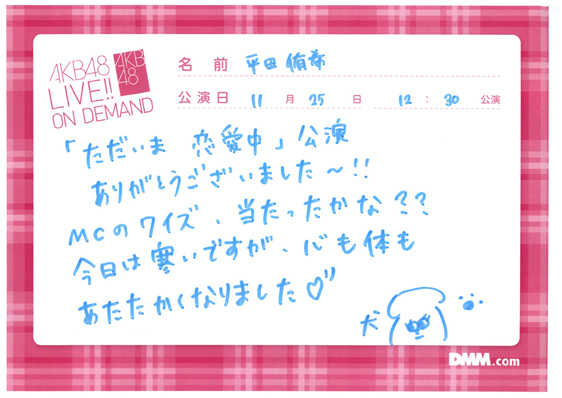 AKB48
LIVE!!
ON DEMAND
AKB
48
名前 平田侑希
公演日 11月25日 12:30公演
「ただいま 恋愛中」公演
ありがとうございました〜!!
MCのクイズ、当たったかな??
今日は寒いですが、心も体も
あたたかくなりました♡
犬
DMM.com